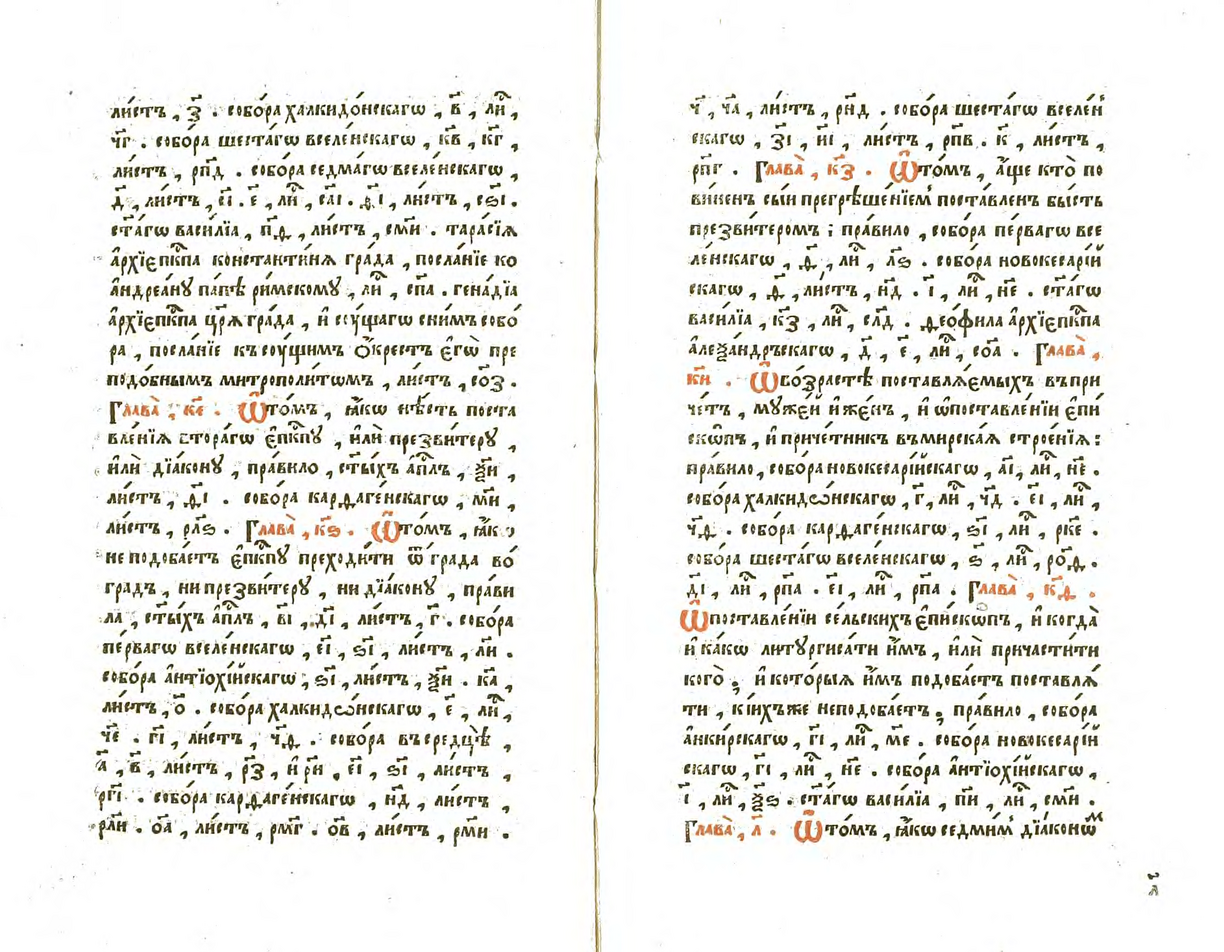 ли́стъ , з҃ . собо́ра халкидо́нскагѡ , в҃ , ли҃ ,
чг҃ . собо́ра шеста́гѡ вселе́нскагѡ , кв҃ , кг҃ ,
ли́стъ , рпд҃ . собо́ра седма́гѡ вселе́нскагѡ ,
д҃ , ли́стъ , сі҃ . е҃ , ли҃ , саі҃ . ѳі҃ , ли́стъ , сѕі҃ .
ст҃а́гѡ васи́лїа , пѳ҃ , ли́стъ , сми҃ . тара́сїѧ
а҆рхїєпк҃па константи́нѧ гра́да , посла́нїе ко
а҆ндреа́нꙋ па́пѣ ри́мскомꙋ , ли҃ , спа҃ . гена́дїа
а҆рхїєпк҃па цр҃ѧ гра́да , и҆ сꙋ́щагѡ сни́мъ собо́
ра , посла́нїе къ сꙋ́щимъ ѻ҆́крестъ є҆гѡ̀ пре
подо́бнымъ митрополи́тѡмъ , ли́стъ , соз҃ .
Глава̀ , ке҃ . Ѽ то́мъ , ꙗ҆́кѡ нѣ́сть поста
вле́нїѧ втора́гѡ є҆пк҃пꙋ , и҆лѝ презви́терꙋ ,
и҆лѝ дїа́конꙋ , пра́вило , ст҃ы́хъ а҆пл҃ъ , ѯи҃ ,
ли́стъ , ѳі҃ . собо́ра карѳаге́нскагѡ , ми҃ ,
ли́стъ , рлѕ҃ . Глава̀ , кѕ҃ . Ѽ то́мъ , ꙗ҆́кѡ
не подоба́етъ є҆пк҃пꙋ преходи́ти ѿ гра́да во́
градъ , ни презви́терꙋ , ни дїа́конꙋ , пра́ви
ла , ст҃ы́хъ а҆пл҃ъ , ві҃ , ді҃ , ли́стъ , г҃ . собо́ра
пе́рвагѡ вселе́нскагѡ , еі҃ , ѕі҃ , ли́стъ , ли҃ .
собо́ра а҆нтїохі́йскагѡ , ѕі҃ , ли́стъ , ѯи҃ . ка҃ ,
ли́стъ , о҃ . собо́ра халкидѡ́нскагѡ , е҃ , ли҃ ,
че҃ . гі҃ , ли́стъ , чѳ҃ . собо́ра въ средцѣ̀ ,
а҃ , в҃ , ли́стъ , рз҃ , и҆ ри҃ , еі҃ , ѕі҃ , ли́стъ ,
ргі҃ . собо́ра карѳаге́нскагѡ , нд҃ , ли́стъ ,
рли҃ . оа҃ , ли́стъ , рмг҃ . ов҃ , ли́стъ , рми҃ .
ч҃ , ча҃ , ли́стъ , рнд҃ . собо́ра шеста́гѡ вселе́н
скагѡ , зі҃ , иі҃ , ли́стъ , рпв҃ . к҃ , ли́стъ ,
рпг҃ . Глава̀ , кз҃ . Ѽ то́мъ , а҆́ще кто̀ по
ви́ненъ сы́и прегрѣше́нїемъ поста́вленъ бы́сть
презви́теромъ ; пра́вило , собо́ра пе́рвагѡ все
ле́нскагѡ , ѳ҃ , ли҃ , лѕ҃ . собо́ра новокесарі́й
скагѡ , ѳ҃ , ли́стъ , нд҃ . і҃ , ли҃ , не҃ . ст҃а́гѡ
васи́лїа , кз҃ , ли҃ , слд҃ . ѳео́фила а҆рхїєпк҃па
а҆леѯа́ндръскагѡ , д҃ , е҃ , ли҃ , соа҃ . Глава̀ ,
ки҃ . Ѽ во́зрастѣ поставлѧ́емыхъ въ при
че́тъ , мꙋже́й и҆ же́нъ , и҆ ѡ҆ поставле́нїи є҆пи
ско́пъ , и҆ приче́тникъ въ мирска́ѧ строе́нїѧ :
пра́вило , собо́ра новокесарі́йскагѡ , аі҃ , ли҃ , не҃ .
собо́ра халкидѡ́нскагѡ , г҃ , ли҃ , чд҃ . еі҃ , ли҃ ,
чѳ҃ . собо́ра карѳаге́нскагѡ , ѕі҃ , ли҃ , рке҃ .
собо́ра шеста́гѡ вселе́нскагѡ , ѕ҃ , ли҃ , роѳ҃ .
ді҃ , ли҃ , рпа҃ . еі҃ , ли҃ , рпа҃ . Глава̀ , кѳ҃ .
Ѽ поставле́нїи се́льскихъ є҆пи́скѡпъ , и҆ когда̀
и҆ ка́кѡ литꙋргиса́ти и҆̀мъ , и҆лѝ причасти́ти
кого̀ ; и҆ кото́рыѧ и҆̀мъ подоба́етъ поставлѧ́
ти , кі́ихъ же неподоба́етъ ; пра́вило , собо́ра
а҆нки́рскагѡ , гі҃ , ли҃ , ме҃ . собо́ра новокесарі́й
скагѡ , гі҃ , ли҃ , не҃ . собо́ра а҆нтїохі́йскагѡ ,
і҃ , ли҃ , ѯѕ҃ . ст҃а́гѡ васи́лїа , пи҃ , ли҃ , сми҃ .
Глава̀ , л҃ . Ѽ то́мъ , ꙗ҆́кѡ седми́мъ дїа́конѡм